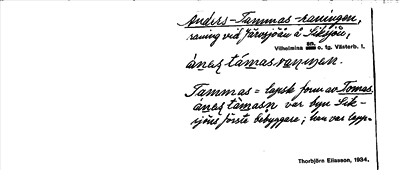 Anders-Tammas-raningen,
raning vid Järvsjöån å Siksjön,
Vilhelmina sn o. tg. Västerb. l.
ánǝʀs támasranɩŋǝn.
Tammas = lapsk form av Tomas.
ánǝʀs támasn var byn Sik-
sjöns förste bebyggare; han var lapp.
Thorbjörn Eliasson, 1934.